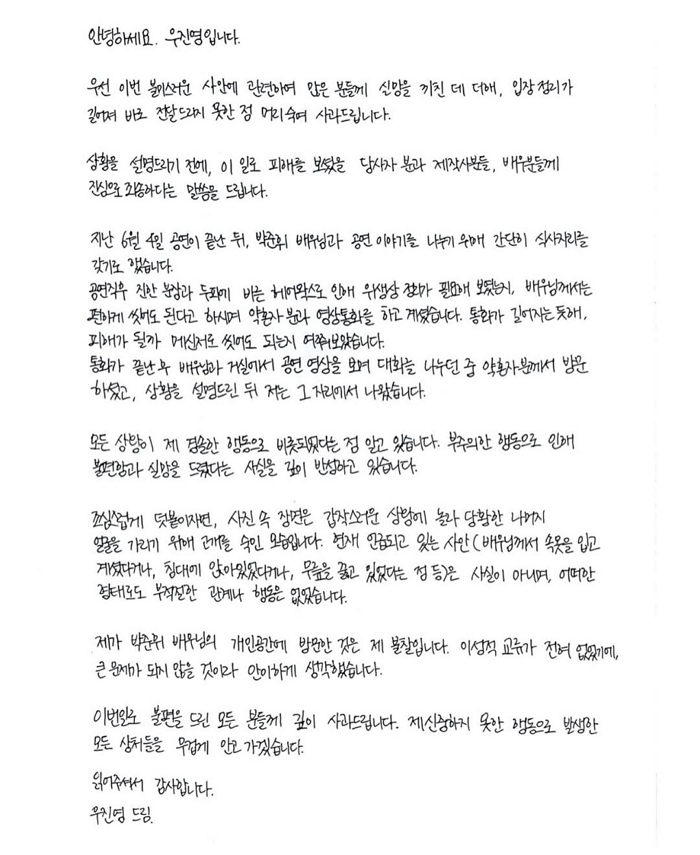 안녕하세요. 우진영입니다.
우선 이번 불미스러운 사안에 관련하여 많은 분들께 실망을 끼친 데 더해, 입장 정리가
길어져 바로 전달드리지 못한 점 머리 숙여 사과드립니다.
상황을 설명드리기 전에, 이 일로 피해를 보셨을 당사자 분과 제작사분들, 배우분들께
진심으로 죄송하다는 말씀을 드립니다.
지난 6월 4일 공연이 끝난 뒤, 박준휘 배우님과 공연 이야기를 나누기 위해 간단히 식사자리를
갖기로 했습니다.
공연직후 진한 분장과 두피에 바른 헤어왁스로 인해 위생상 정화가 필요해 보였는지, 배우님께서는
편하게 씻어도 된다고 하시며 약혼자 분과 영상통화를 하고 계셨습니다. 통화가 길어지는듯해,
피해가 될까 메신저로 씻어도 되는지 여쭈어보았습니다.
통화가 끝난 후 배우님과 거실에서 공연 영상을 보며 대화를 나누던 중 약혼자분께서 방문
하셨고, 상황을 설명드린 뒤 저는 그 자리에서 나왔습니다.
모든 상황이 제 경솔한 행동으로 비롯되었다는 점 알고 있습니다. 부주의한 행동으로 인해
불편함과 실망을 드렸다는 사실을 깊이 반성하고 있습니다.
조심스럽게 덧붙이자면, 사진 속 장면은 갑작스러운 상황에 놀라 당황한 나머지
얼굴을 가리기 위해 고개를 숙인 모습입니다. 현재 언급되고 있는 사안(배우님께서 속옷을 입고
계셨다거나, 침대에 앉아있었다거나, 무릎을 꿇고 있었다는 점 등)은 사실이 아니며, 어떠한
형태로도 부적절한 관계나 행동은 없었습니다.
제가 박준휘 배우님의 개인공간에 방문한 것은 제 불찰입니다. 이성적 교류가 전혀 없었기에,
큰 문제가 되지 않을 것이라 안이하게 생각했습니다.
이번일로 불편을 드린 모든 분들께 깊이 사과드립니다. 제 신중하지 못한 행동으로 발생한
모든 상처들을 무겁게 안고 가겠습니다.
읽어주셔서 감사합니다.
우진영 드림.